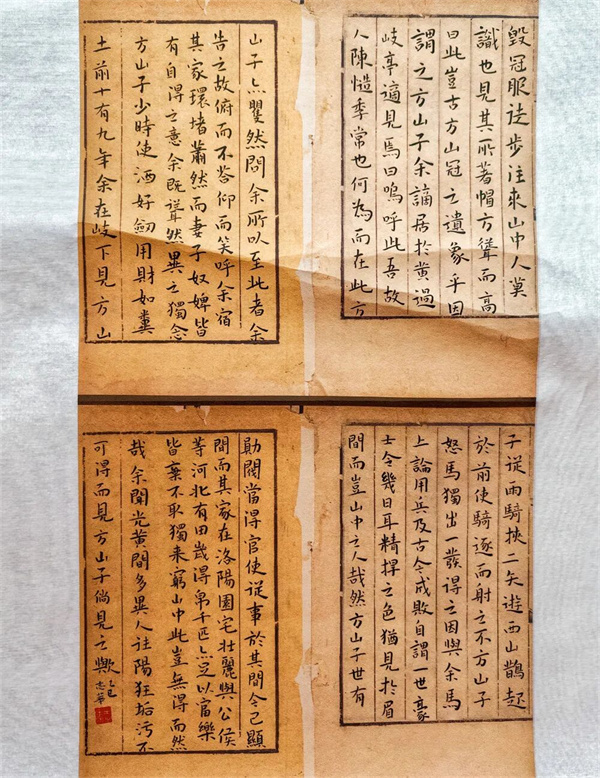 毀冠服徒步往來山中人莫
識也見其所著帽方聳而高
曰此豈古方山冠之遺象乎因
謂之方山子余謫居於黃過
岐亭適見焉曰嗚呼此吾故
人陳慥季常也何為而在此方
山子亦矍然問余所以至此者余
告之故俯而不荅仰而笑呼余宿
其家環堵蕭然而妻子奴婢皆
有自得之意余既聳然異之獨念
方山子少時使酒好劒用財如糞
土前十有九年余在岐下見方山
子從兩騎挾二矢遊西山鵲起
於前使騎逐而射之不方山子
怒馬獨出一發得之因與余馬
上論用兵及古今成敗自謂一世豪
士今幾日耳精捍之色猶見於眉
間而豈山中之人哉然方山子世有
勛閥當得官使從事於其間今已顯
間而其家在洛陽園宅壯麗與公侯
等河北有田歲得帛千匹亦足以富樂
皆棄不取獨来窮山中此豈無得而然
哉余聞光黃間多異人往陽狂垢污不
可得而見方山子倘見之歟
乙巳
志華